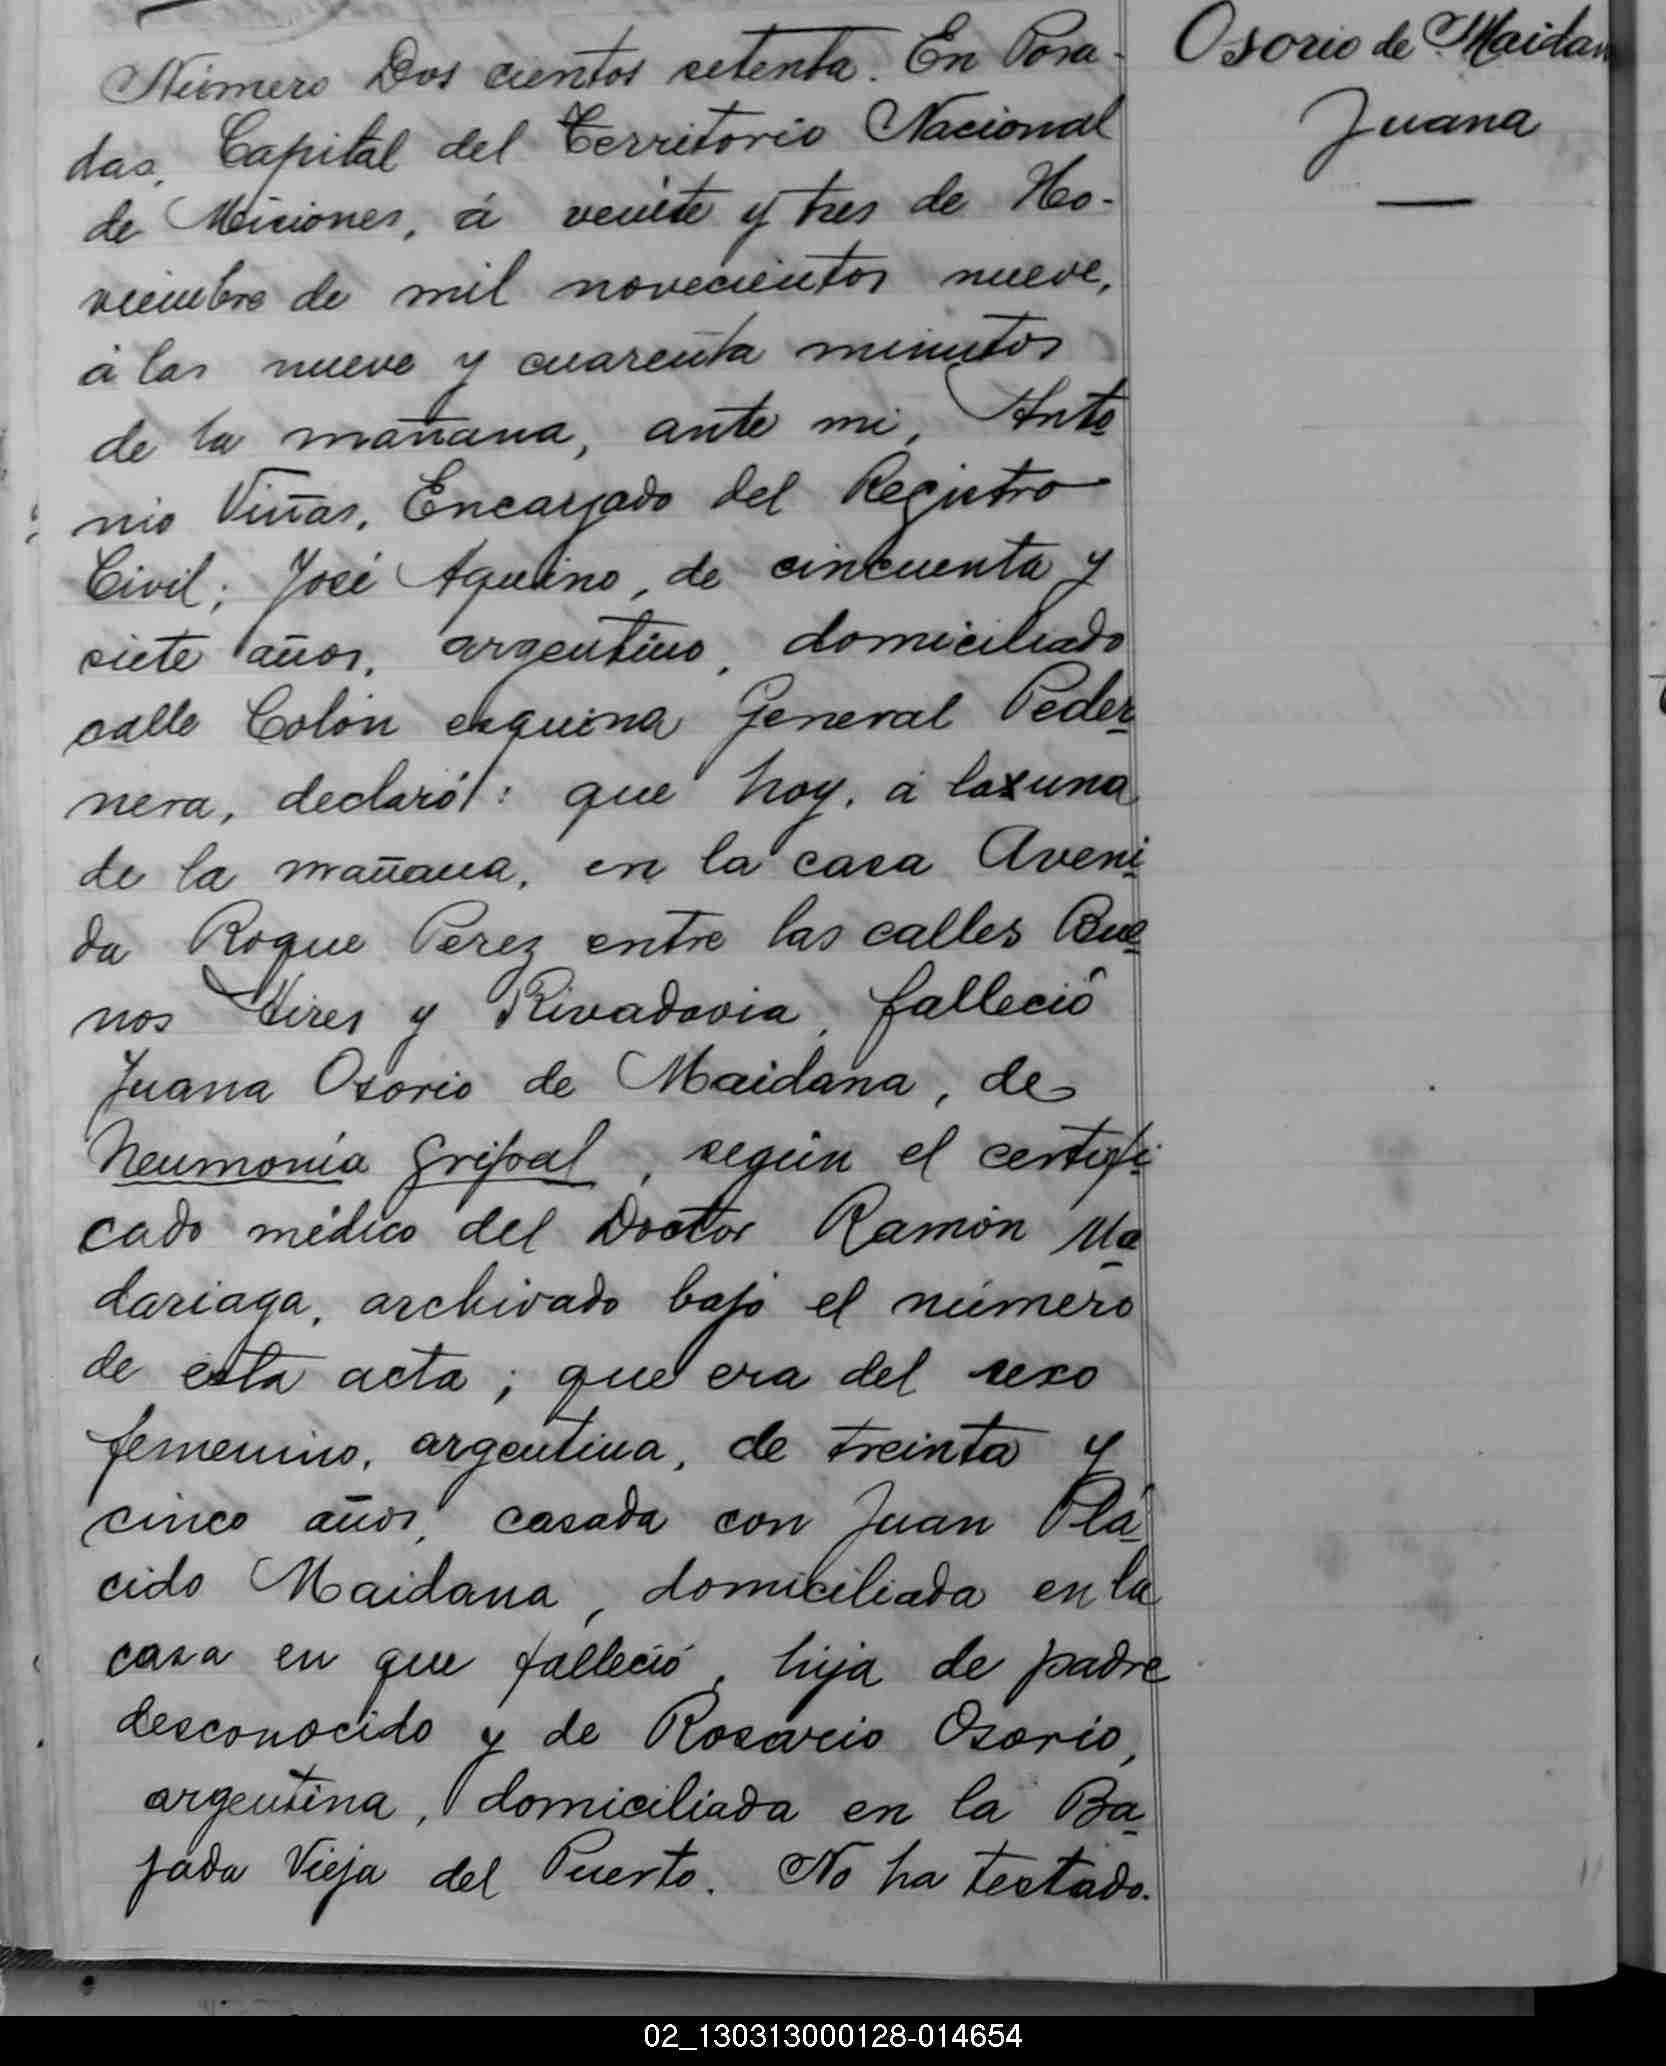 Osorio de Maidan
Juana
Número Dos cientos setenta. En Posa-
das, Capital del Territorio Nacional
de Misiones, á veinte y tres de No-
viembre de mil novecientos nueve,
á las nueve y cuarenta minutos
de la mañana, ante mi, Anto
nio Viñas, Encargado del Registro
Civil; José Aquino, de cincuenta y
siete años, argentino, domiciliado
calle Colón esquina General Peder
nera, declaró: que hoy, á las una
de la mañana, en la casa Aveni
da Roque Perez entre las calles Bue
nos Aires y Rivadavia, falleció
Juana Osorio de Maidana, de
Neumonía Gripal, según el certifi
cado médico del Doctor Ramón Ma
dariaga, archivado bajo el número
de esta acta; que era del sexo
femenino, argentina, de treinta y
cinco años, casada con Juan Plá
cido Maidana, domiciliada en la
casa en que falleció, hija de padre
desconocido y de Rosario Osorio,
argentina, domiciliada en la Ba
jada Vieja del Puerto. No ha testado.
02_130313000128-014654